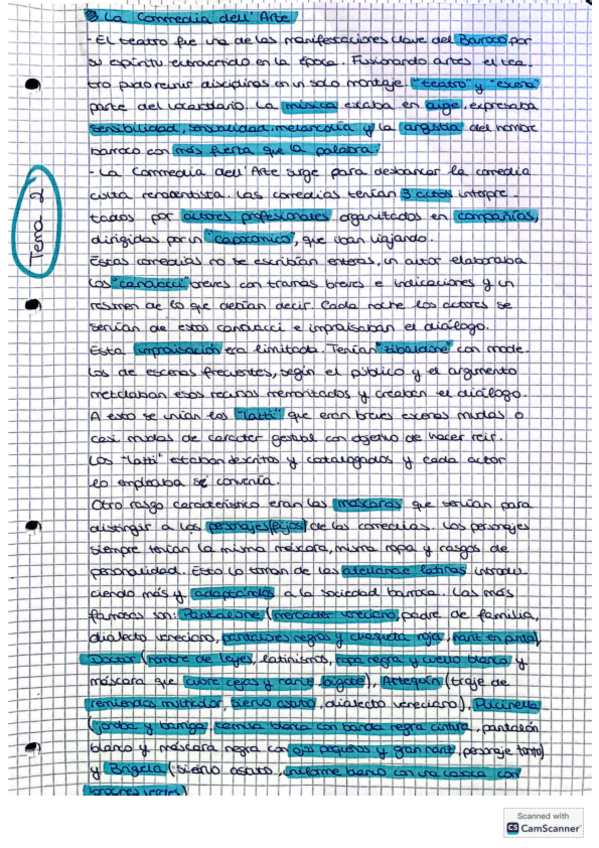 La Commedia dell'Arte
- El teatro fue una de las manifestaciones clave del Barroco por
su espíritu extravertido en la época. Fusionando artes el tea-
tro pudo reunir disciplinas en un solo montaje. "teatro" y "escena"
parte del vocabulario. La música estaba en auge, expresaba
sensibilidad, sensualidad, melancolía y la angustia del hombre
barroco con más fuerza que la palabra.
- La Commedia dell'Arte surge para desbancar la comedia
culta renacentista. Las comedias tenían 3 actos interpre-
tados por actores profesionales organizados en compañías,
dirigidas por un "capocomico", que iban viajando.
Estas comedias no se escribían enteras, un autor elaboraba
los "canovacci" breves con tramas breves e indicaciones y un
resumen de lo que debían decir. Cada noche los actores se
servían de estos canovacci e improvisaban el diálogo.
Esta improvisación era limitada. Tenían "zibaldone" con mode-
los de escenas frecuentes, según el público y el argumento
mezclaban esos recursos memorizados y creaban el diálogo.
A esto se unían los "lazzi" que eran breves escenas mudas o
casi mudas de carácter gestual con objetivo de hacer reír.
Los "lazzi" estaban descritos y catalogados y cada actor
lo empleaba si convenía.
Otro rasgo característico eran las máscaras que servían para
distinguir a los personajes (fijos) de las comedias. Los personajes
siempre tenían la misma máscara, misma ropa y rasgos de
personalidad. Esto lo toman de las atellanae latinas introdu-
ciendo más y adaptándolos a la sociedad barroca. Los más
famosos son: Pantalone (mercader veneciano, padre de familia,
dialecto veneciano, pantalones negros y chaqueta roja, nariz en punta)
Doctor (hombre de leyes, latinismos, ropa negra y cuello blanco y
máscara que cubre cejas y nariz, bigote), Arlequín (traje de
remiendos multicolor, siervo astuto, dialecto veneciano), Pulcinella
(joroba y barriga, camisa blanca con banda negra cintura, pantalón
blanco y máscara negra con ojos pequeños y gran nariz, personaje tonto)
y Brighella (siervo astuto, uniforme blanco con una casaca con
galones verdes)
Tema 2
Scanned with
CS CamScanner